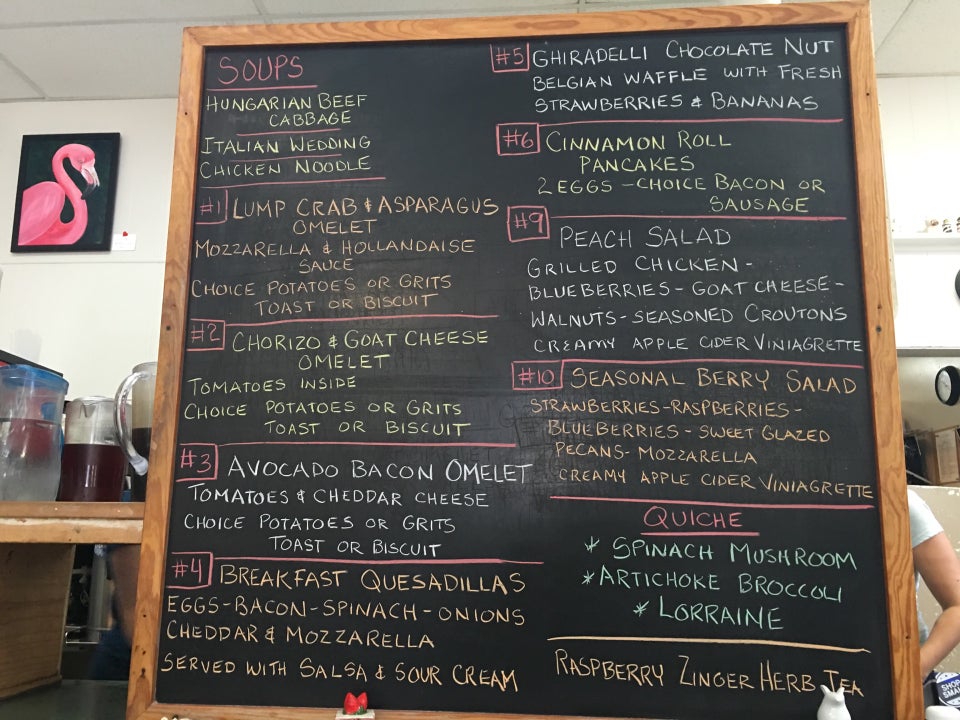 SOUPS
HUNGARIAN BEEF
CABBAGE
ITALIAN WEDDING
CHICKEN NOODLE
#1 LUMP CRAB & ASPARAGUS
OMELET
MOZZARELLA & HOLLANDAISE
SAUCE
CHOICE POTATOES OR GRITS
TOAST OR BISCUIT
#2 CHORIZO & GOAT CHEESE
OMELET
TOMATOES INSIDE
CHOICE POTATOES OR GRITS
TOAST OR BISCUIT
#3 AVOCADO BACON OMELET
TOMATOES & CHEDDAR CHEESE
CHOICE POTATOES OR GRITS
TOAST OR BISCUIT
#4 BREAKFAST QUESADILLAS
EGGS-BACON-SPINACH-ONIONS
CHEDDAR & MOZZARELLA
SERVED WITH SALSA & SOUR CREAM
#5 GHIRADELLI CHOCOLATE NUT
BELGIAN WAFFLE WITH FRESH
STRAWBERRIES & BANANAS
#6 CINNAMON ROLL
PANCAKES
2 EGGS - CHOICE BACON OR
SAUSAGE
#9 PEACH SALAD
GRILLED CHICKEN-
BLUEBERRIES - GOAT CHEESE -
WALNUTS - SEASONED CROUTONS
CREAMY APPLE CIDER VINIAGRETTE
#10 SEASONAL BERRY SALAD
STRAWBERRIES-RASPBERRIES-
BLUEBERRIES - SWEET GLAZED
PECANS - MOZZARELLA
CREAMY APPLE CIDER VINIAGRETTE
QUICHE
* SPINACH MUSHROOM
* ARTICHOKE BROCCOLI
* LORRAINE
RASPBERRY ZINGER HERB TEA
SHOP
SMALL